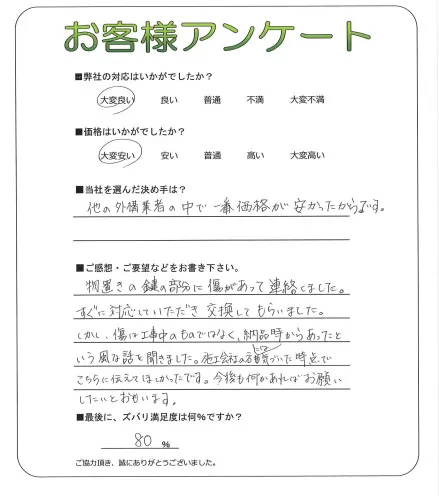 お客様アンケート
■弊社の対応はいかがでしたか？
大変良い 良い 普通 不満 大変不満
■価格はいかがでしたか？
大変安い 安い 普通 高い 大変高い
■当社を選んだ決め手は？
他の外構業者の中で一番価格が安かったからです。
■ご感想・ご要望などをお書き下さい。
物置きの鍵の部分に傷があって連絡しました。
すぐに対応していただき交換してもらいました。
しかし、傷は工事中のものではなく、納品時からあったと
いう風な話を聞きました。施工会社の方には気づいた時点で
こちらに伝えてほしかったです。今後も何かあればお願い
したいとおもいます。
■最後に、ズバリ満足度は何％ですか？
80 %
ご協力頂き、誠にありがとうございました。